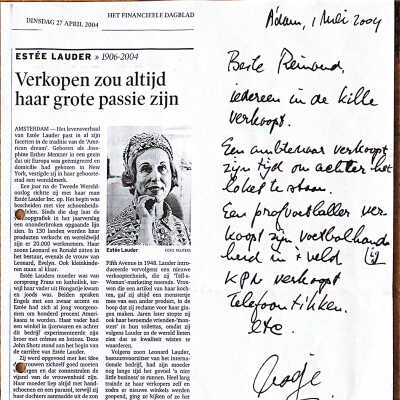 DINSDAG 27 APRIL 2004
HET FINANCIEELE DAGBLAD
ESTÉE LAUDER » 1906-2004
Verkopen zou altijd
haar grote passie zijn
AMSTERDAM — Het levensverhaal
van Estée Lauder past in al zijn
facetten in de traditie van de 'Ame-
rican dream'. Geboren als Jose-
phine Esther Mentzer in een gezin
dat uit Europa was geëmigreerd en
domicilie had gekozen in New
York, vestigde zij in haar geboorte-
stad een wereldmerk.
Een jaar na de Tweede Wereld-
oorlog richtte zij met haar man
Estée Lauder Inc. op. Het begin was
bescheiden met vier schoonheids-
Sinds die dag kan de
in het jaarverslag een
ononderbroken opgaande lijn
zien. In 130 landen worden haar
producten verkocht en wereldwijd
zijn er 20.000 werknemers. Haar
zonen Leonard en Ronald zitten in
het bestuur, evenals de vrouw van
Leonard, Evelyn. Ook kleinkinde-
ren staan al klaar.
Estée Lauders moeder was van
oorsprong Frans en katholiek, ter-
wijl haar vader uit Hongarije kwam
en joods was. Beiden spraken
Engels met een zwaar accent en
Estée had zich al jong voorgeno-
men om honderd procent Ameri-
kaans te worden. Haar vader had
een winkel in ijzerwaren en achter
dit bedrijf experimenteerde zijn
broer met crèmes en lotions. Deze
John Shotz stond aan het begin van
de carrière van Estée Lauder.
Zij werd opgevoed met het idee
vrouwen zichzelf goed moeten
en dat schoonmaken de
vijand van de vrouwenheid zijn.
Haar moeder liep altijd met hand-
schoenen en een parasol, terwijl zij
haar dochters aanmaakte uit de zon
Estée Lauder
FOTO: REUTERS
Fifth Avenue in 1948. Lauder intro-
duceerde vervolgens een nieuwe
verkooptechniek, die zij 'Tell-a-
Woman'-marketing noemde. Vrou-
wen die een artikel van haar koch-
ten, gaf zij altijd een monstertje
mee van een ander product, in de
hoop dat zij reclame voor haar gin-
gen maken. Jaren later stopte zij
ook haar beroemde vrienden-'mon-
sters' in hun toilettas, omdat zij
volgens Lauder de wereld lieten zien
dat ze in kwaliteit wisten te
waarderen.
Volgens zoon Leonard Lauder,
bestuursvoorzitter van het Interna-
tionale bedrijf, had zijn moeder
nog lang tijd het gevoel 'a nice
little business' te runnen. Heel lang
A'dam, 1 Mei 2004
Beste Reinoud,
iedereen in de kille
verkoopt.
Een ambtenaar verkoopt
zijn tijd om achter het
loket te staan.
Een profvoetballer ver-
koopt zijn voetbalhandig
heid in 't veld
KPN verkoopt
telefoontikken.
etc.